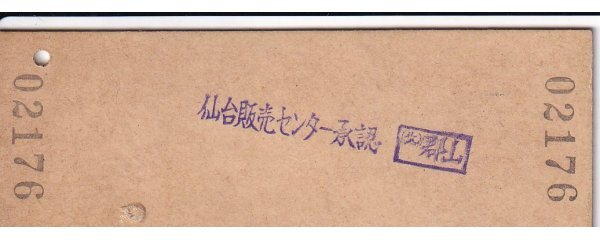 02176
仙台販売センター承認
郡山
02176